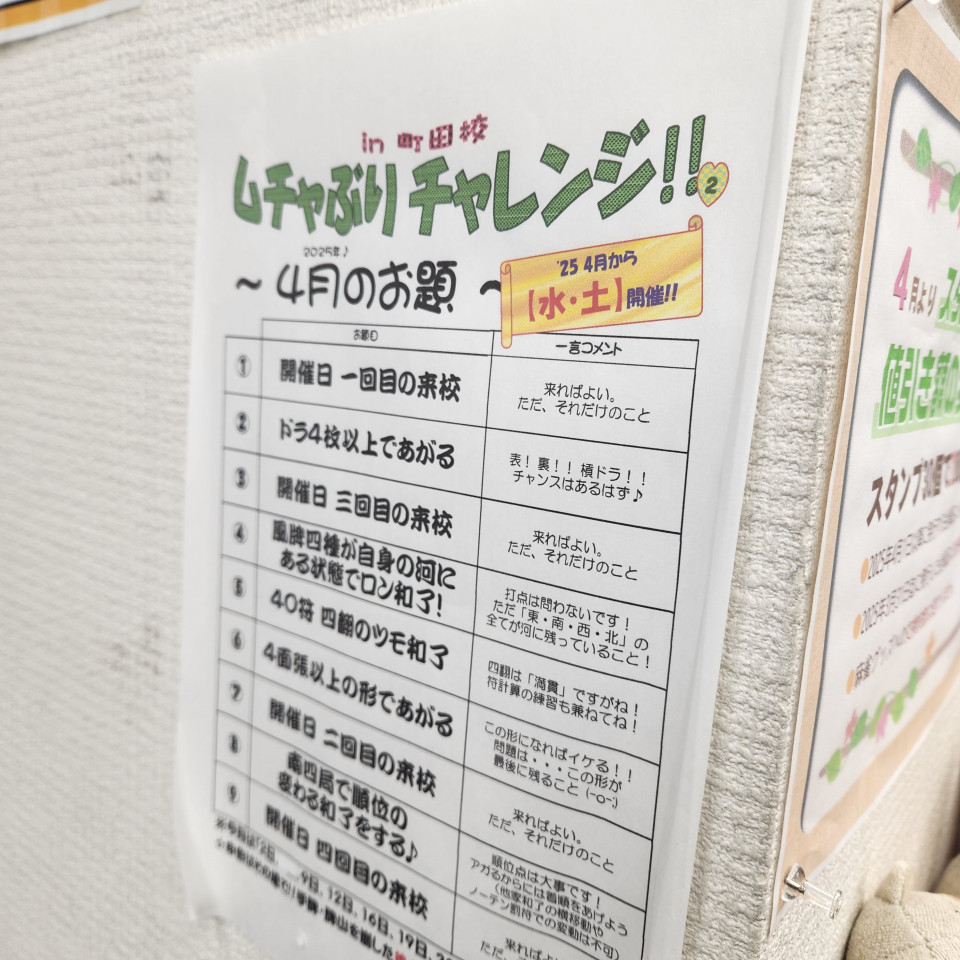 in 町田校
ムチャぶりチャレンジ!!
2
2025年♪
～4月のお題～
'25 4月から
【水・土】開催!!
お題目
一言コメント
①
開催日 一回目の来校
来ればよい。
ただ、それだけのこと
②
ドラ4枚以上であがる
表！裏！！槓ドラ！！
チャンスはあるはず♪
③
開催日 三回目の来校
来ればよい。
ただ、それだけのこと
④
風牌四種が自身の河に
ある状態でロン和了!
打点は問わないです！
ただ「東・南・西・北」の
全てが河に残っていること！
⑤
40符 四翻のツモ和了
四翻は「満貫」ですがね！
符計算の練習も兼ねてね！
⑥
4面張以上の形であがる
この形になればイケる！！
問題は・・・この形が
最後に残ること (-o-;)
⑦
開催日 二回目の来校
来ればよい。
ただ、それだけのこと
⑧
南四局で順位の
変わる和了をする♪
順位点は大事です！
アガるからには着順をあげよう
(他家和了の横移動や
ノーテン罰符での変動は不可)
⑨
開催日 四回目の来校
来ればよ
ただ、それ
9日、12日、16日、19日、
4月より
値引き
スタンプ30個で